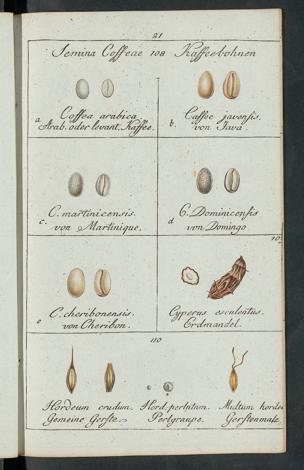 21
Semina Coffeae 108 Kaffeebohnen
a Coffea arabica
Arab. oder levant. Kaffee.
b. Caffee javensis.
von Java.
c. C. martinicensis.
von Martinique.
d C. Dominicensis
von Domingo
e C. cheribonensis.
von Cheribon.
10
Cyperus esculentus.
Erdmandel.
110
Hordeum crudum.
Gemeine Gerste.
Hord. perlatum.
Perlgraupe.
Multum horde
Gerstenmalz.